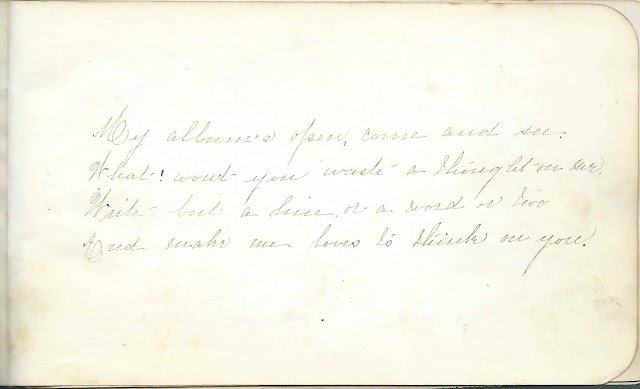 My album's open, come and see.
What! wont you waste a thought on me.
Write but a line, or a word or two
And make me love to think on you.